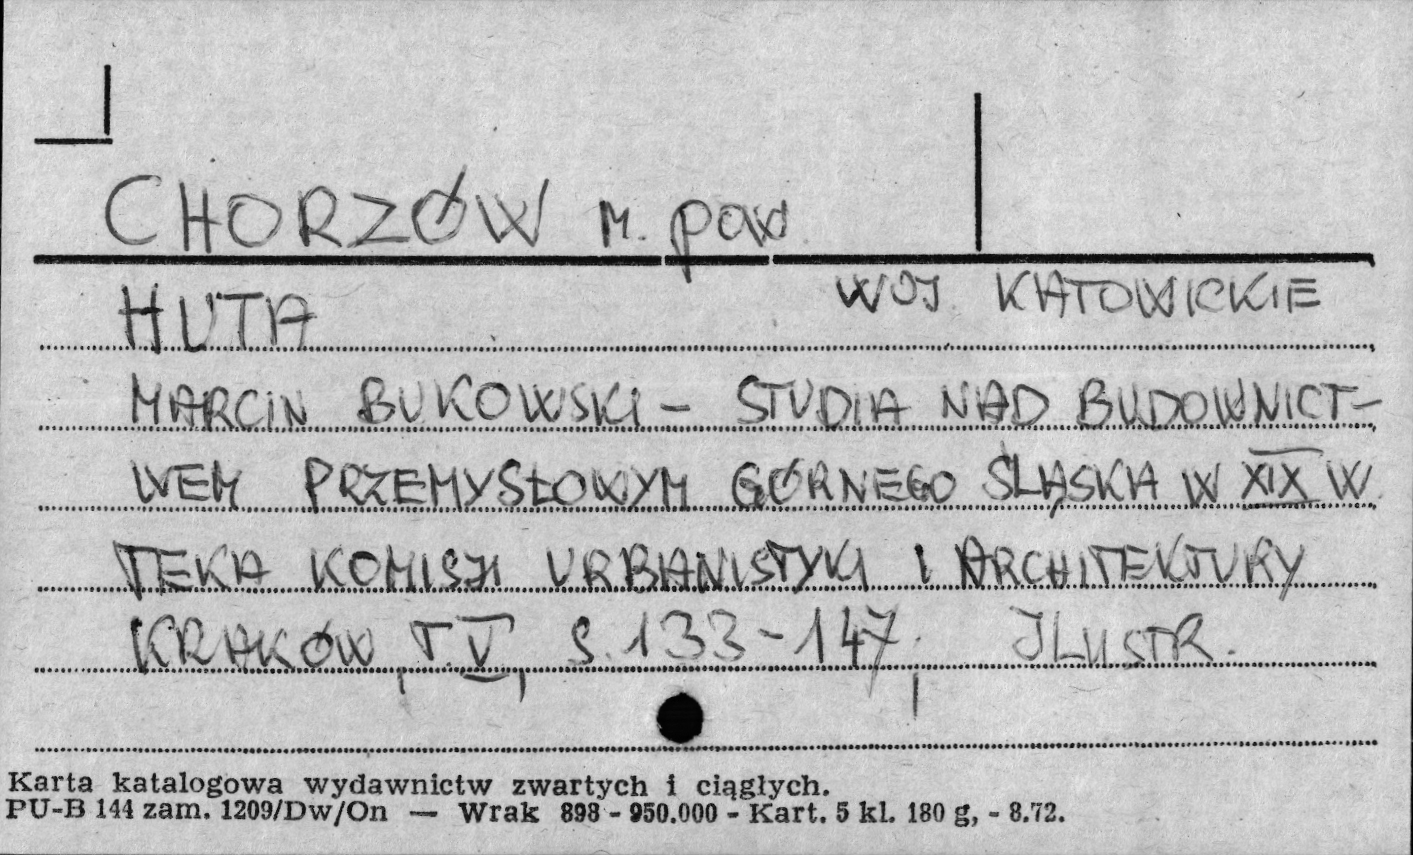 CHORZÓW M. pow
HUTA WOJ. KATOWICKIE
MARCIN BUKOWSKI – STUDIA NAD BUDOWNICT–
WEM PRZEMYSŁOWYM GÓRNEGO ŚLĄSKA W XIX W.
TEKA KOMISJI URBANISTYKI I ARCHITEKTURY
KRAKÓW, T. V, S. 133–147, ILUSTR.
Karta katalogowa wydawnictw zwartych i ciągłych.
PU-B 144 zam. 1209/Dw/On — Wrak 898 - 950.000 - Kart. 5 kl. 180 g, - 8.72.